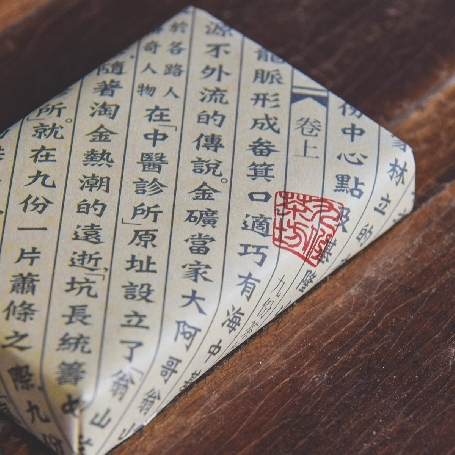 象林立的
份中心點
卷上
九份茶坊
龍脈形成畚箕口適巧有海中
源不外流的傳說。金礦當家大阿哥翁山
於各路人
傳奇人物
在「中醫診所」原址設立了「翁山
隨著淘金熱潮的遠逝,坑長統籌
所。就在九份一片蕭條之際,九份